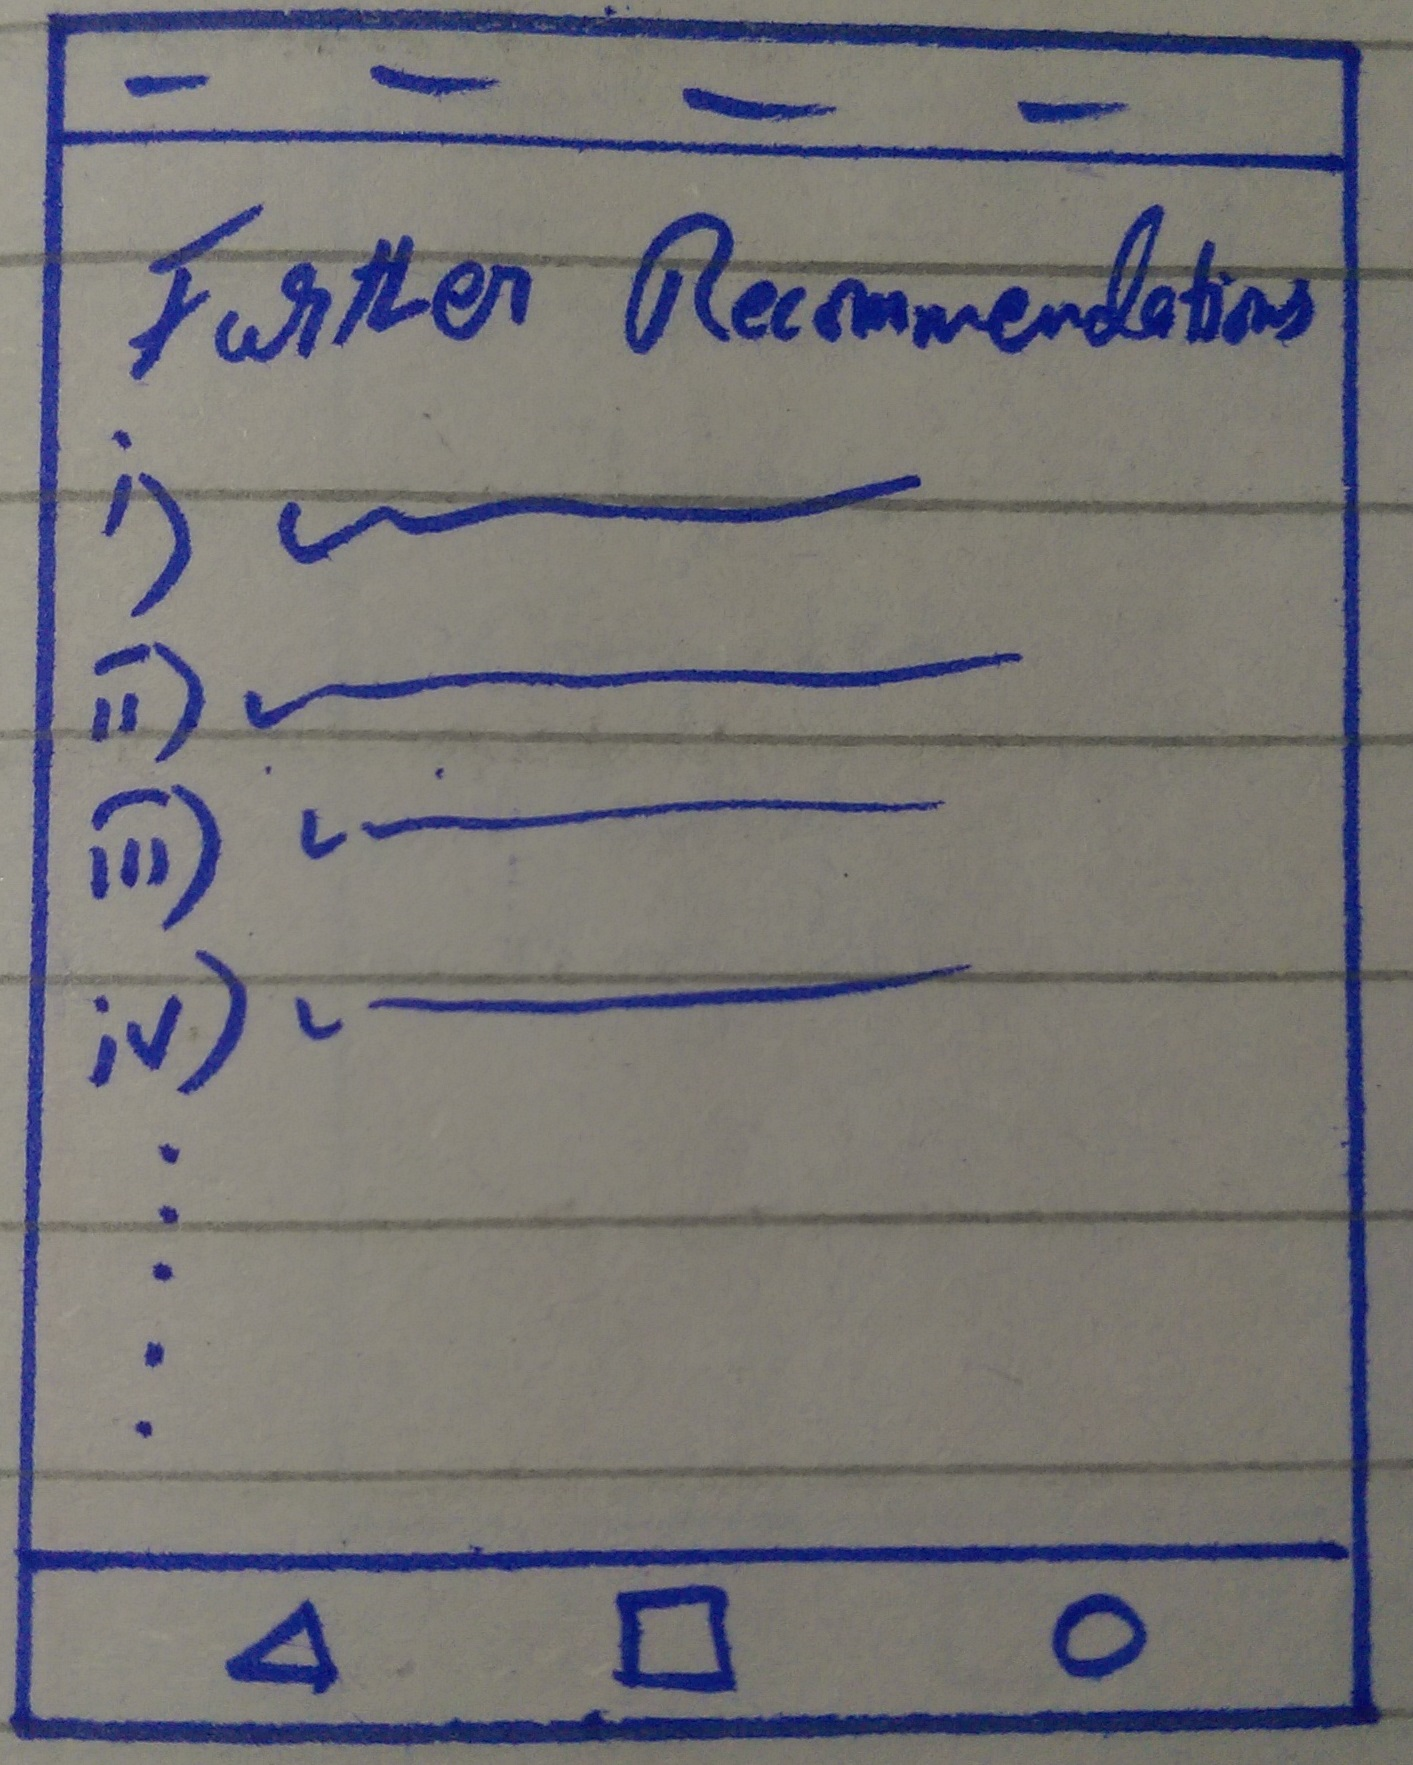 Further Recommendations
i)
ii)
iii)
iv)